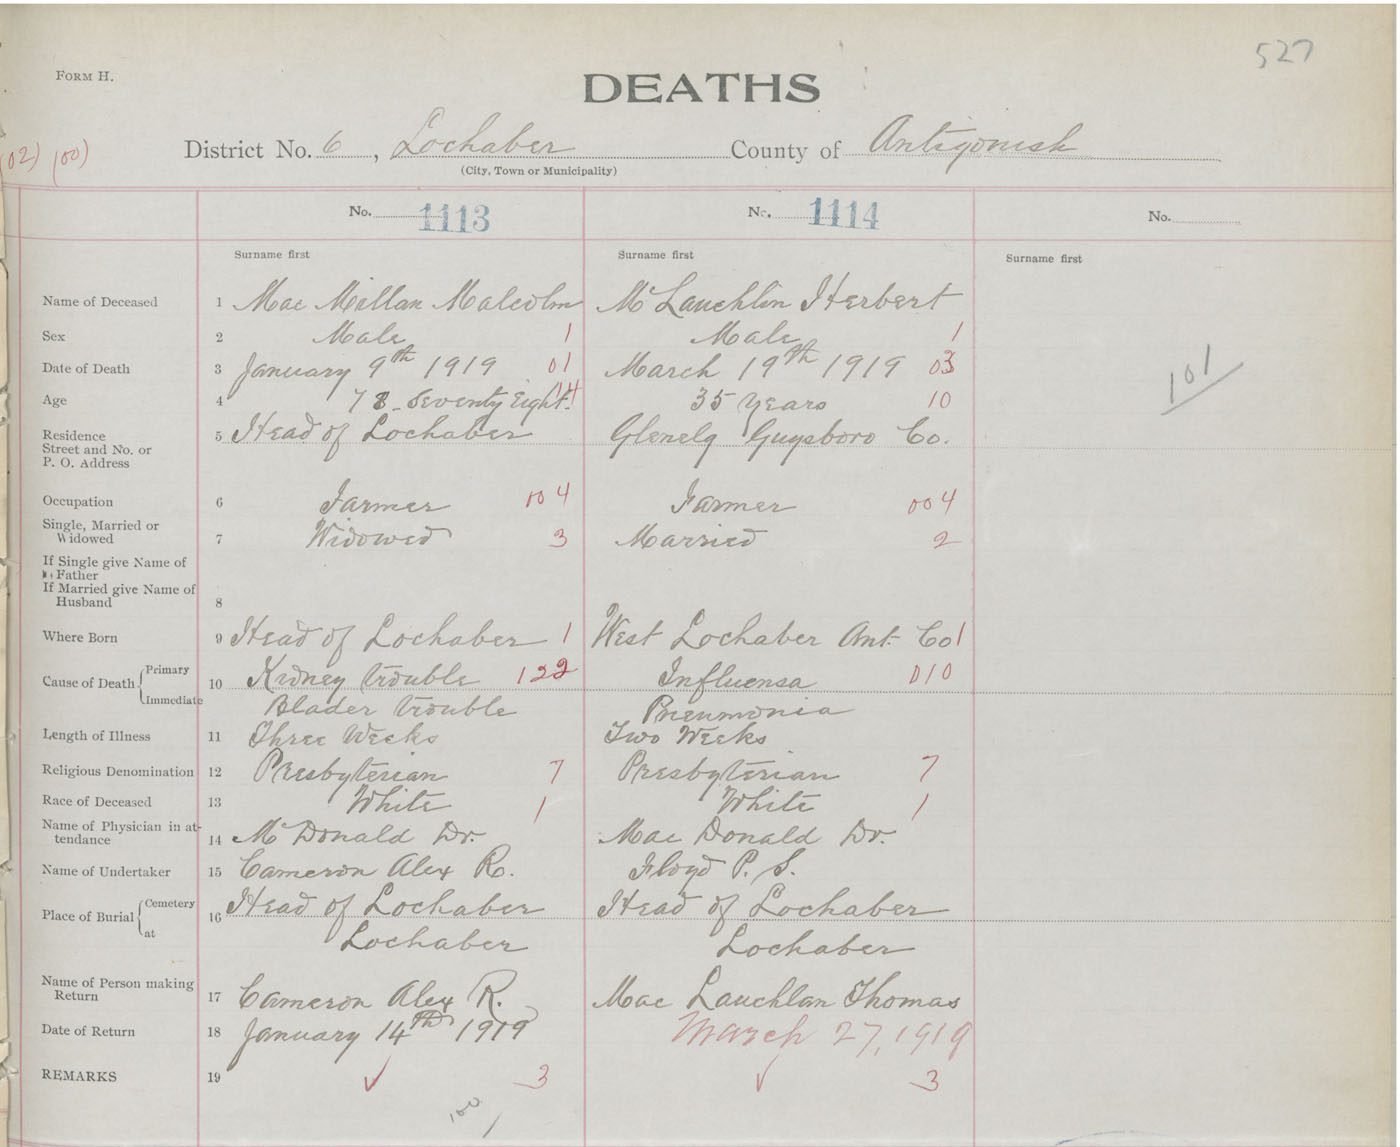 527
FORM H.
DEATHS
(02) (00)
District No. 6, Lochaber County of Antigonish
(City, Town or Municipality)
No. 1113 No. 1114 No.
Surname first Surname first Surname first
Name of Deceased 1 Mac Millan Malcolm Mc Lauchlin Herbert
Sex 2 Male 1 Male 1
Date of Death 3 January 9th 1919 01 March 19th 1919 03
101
Age 4 78 - Seventy Eight. 14 35 Years 10
Residence
Street and No. or
P. O. Address 5 Head of Lochaber Glenelg Guysboro Co.
Occupation 6 Farmer 004 Farmer 004
Single, Married or
Widowed 7 Widowed 3 Married 2
If Single give Name of
Father
If Married give Name of
Husband 8
Where Born 9 Head of Lochaber 1 West Lochaber Ant. Co 1
Cause of Death Primary
Immediate 10 Kidney trouble 122 Influensa 010
Blader trouble Pneumonia
Length of Illness 11 Three Weeks Two Weeks
Religious Denomination 12 Presbyterian 7 Presbyterian 7
Race of Deceased 13 White 1 White 1
Name of Physician in at-
tendance 14 Mc Donald Dr. Mac Donald Dr.
Name of Undertaker 15 Cameron Alex R. Floyd P. S.
Place of Burial Cemetery
at 16 Head of Lochaber Head of Lochaber
Lochaber Lochaber
Name of Person making
Return 17 Cameron Alex R. Mac Lauchlan Thomas
Date of Return 18 January 14th 1919 March 27, 1919
REMARKS 19 ✓ 3 ✓ 3
100